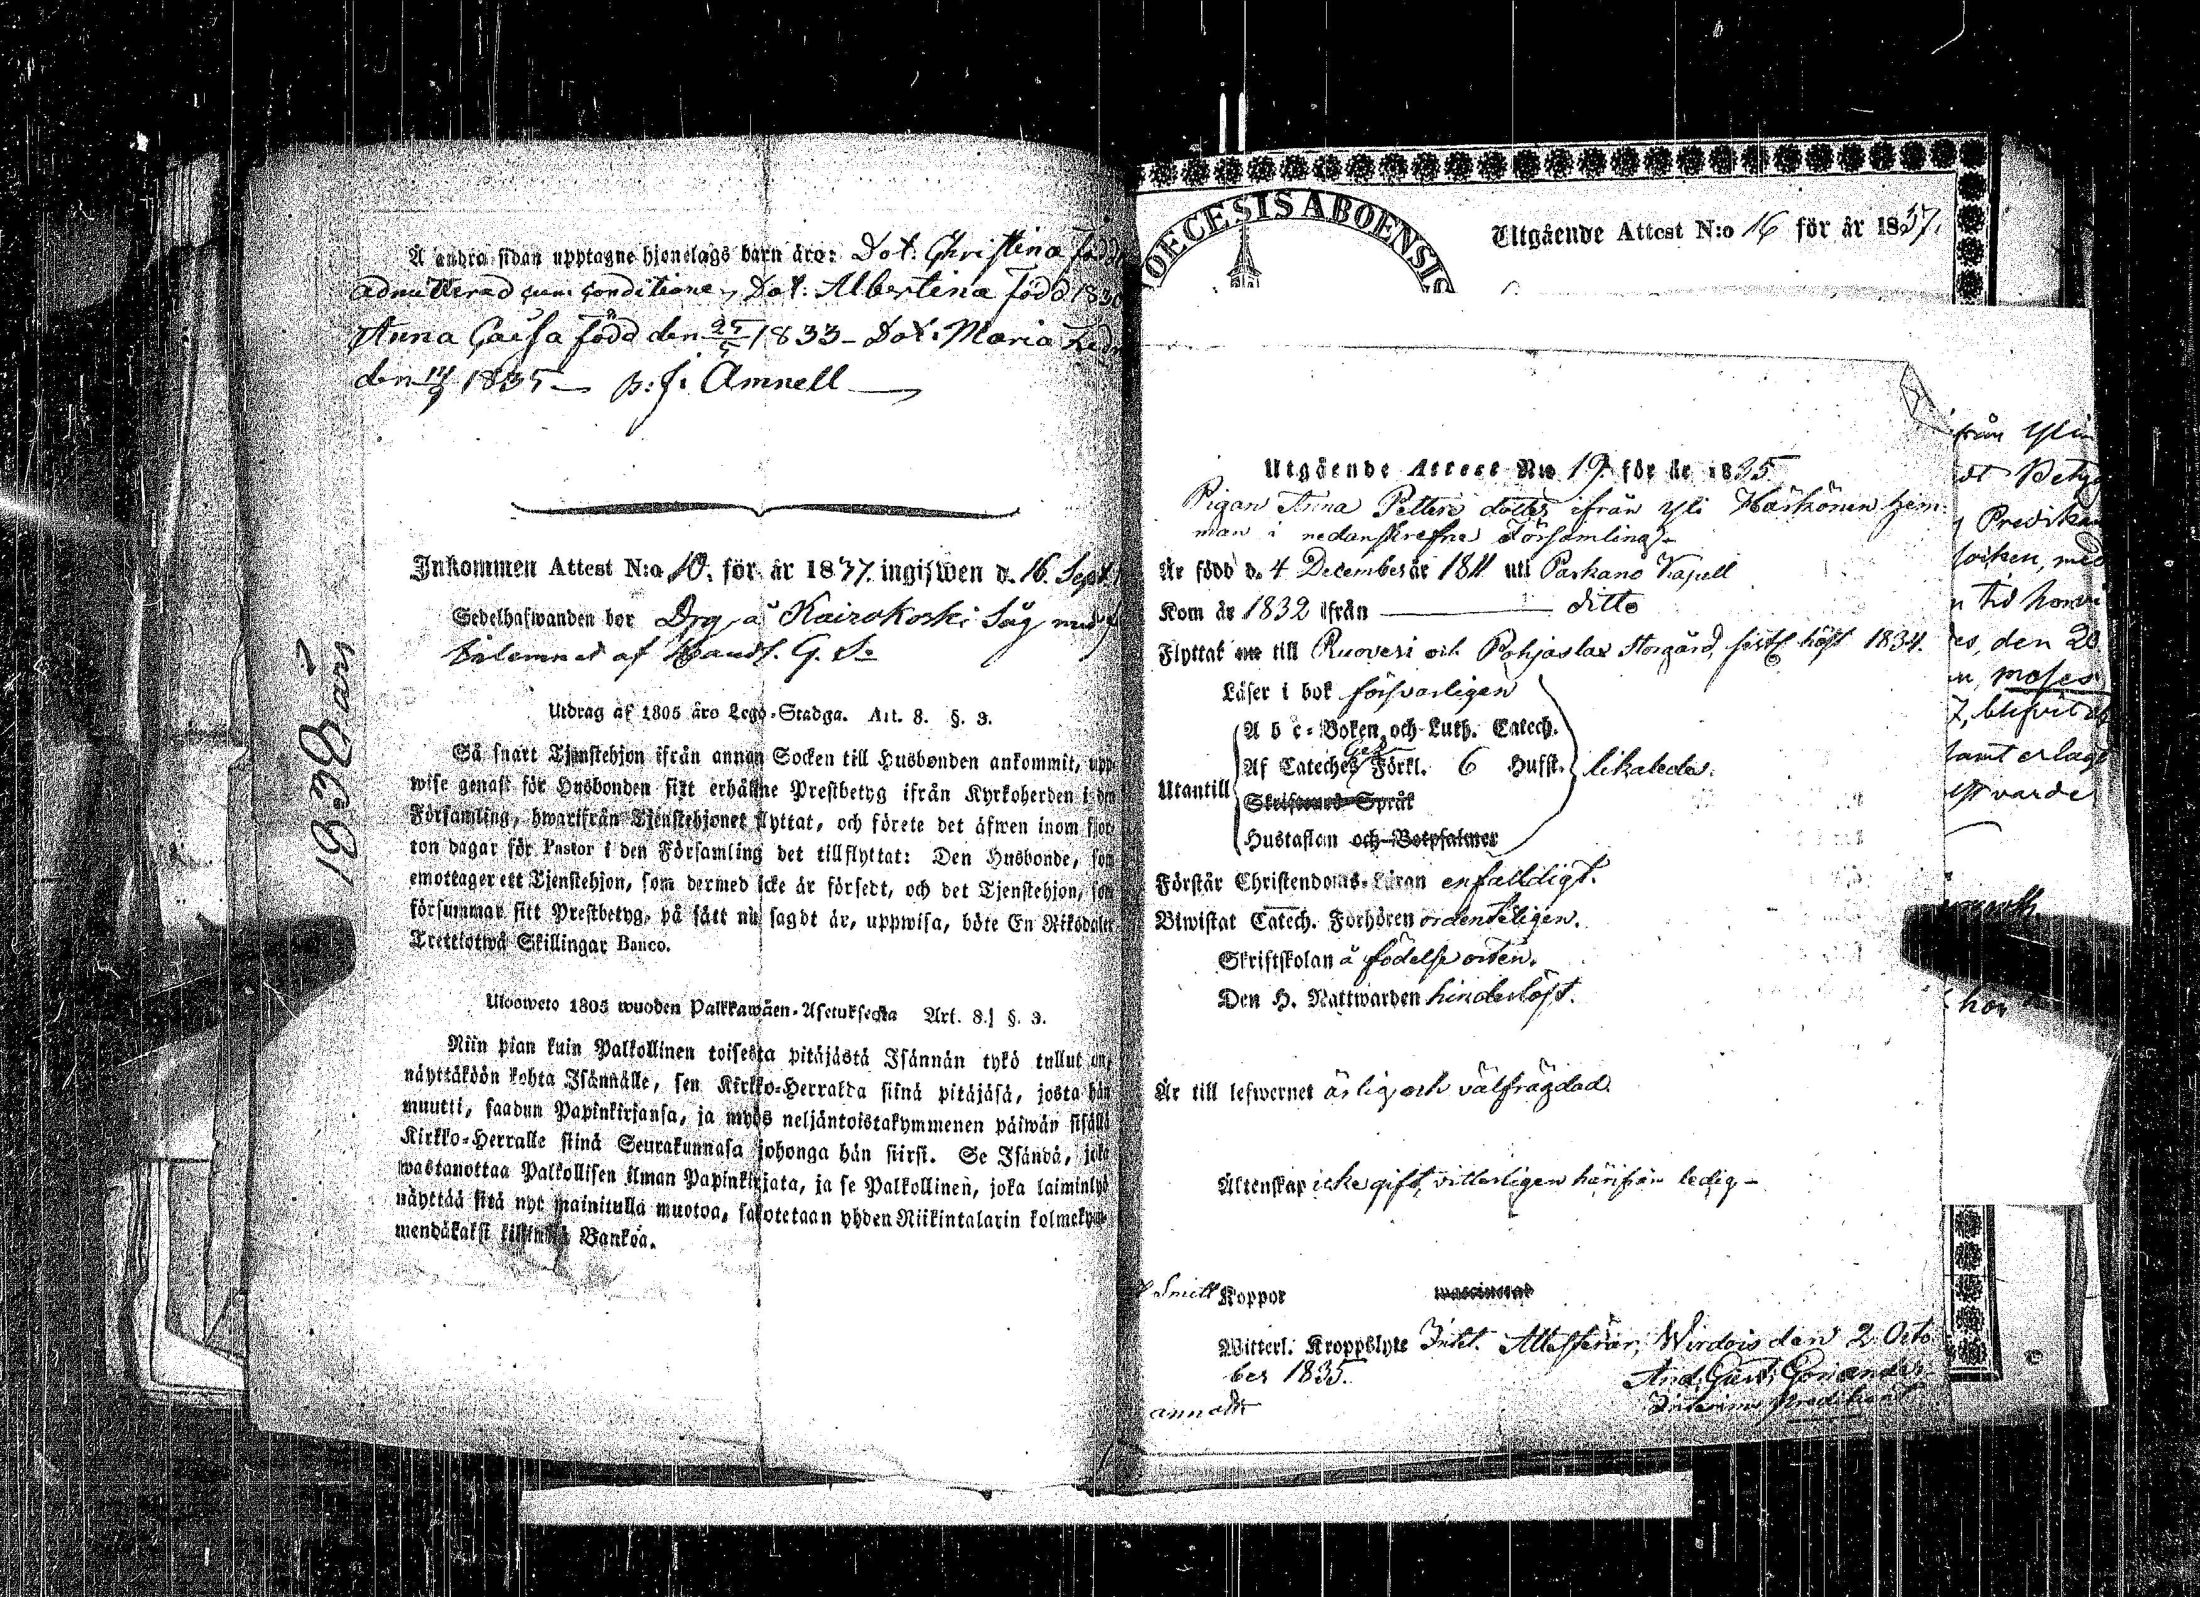 Å andra sidan upptagne hjonelags barn äro: Dot. Christina född
admitterad cum conditione, Dot: Albertina född 1830
Anna Caisa född den 25/5 1833 - Dot: Maria
den 14/9 1835 - p: f: Amnell
Inkommen Attest N:o 10. för år 1837. ingifwen d. 16. Sept.
Sedelhafwanden bor Drg å Kairokoski Såg med
bilemnad af Handl. G. S.
Utdrag af 1805 års Lego-Stadga. Art. 8. §. 3.
Så snart Tjenstehjon ifrån annan Socken till Husbonden ankommit, upp-
wise genast för Husbonden sitt erhållne Prestbetyg ifrån Kyrkoherden i den
Församling, hwarifrån Tjenstehjonet flyttat, och förete det äfwen inom fjor-
ton dagar för Pastor i den Församling det tillflyttat: Den Husbonde, som
emottager ett Tjenstehjon, som dermed icke är försedt, och det Tjenstehjon, som
försummar sitt Prestbetyg, på sätt nu sagdt är, uppwisa, böte En Riksdaler
Trettiotwå Skillingar Banco.
Uloosweto 1805 wuoden Palkkawäen-Asetuksesta Art. 8. §. 3.
Niin pian kuin Palkollinen toisesta pitäjästä Isännän tykö tullut on,
näyttäköön kohta Isännälle, sen Kirkko-Herralda siinä pitäjäsä, josta hän
muutti, saadun Papinkirjansa, ja myös neljäntoistakymmenen päiwän sisällä
Kirkko-Herralle siinä Seurakunnasa johonga hän siirsi. Se Isändä, joka
wastanottaa Palkollisen ilman Papinkirjata, ja se Palkollinen, joka laiminlyö
näyttää sitä nyt mainitulla muotoa, sakotetaan yhden Riikintalarin kolmekym-
mendäkaksi killingiä Bankoa.
1838 års
DIOECESIS ABOENSIS
Utgående Attest N:o 16 för år 1837.
Utgående Attest N:o 19. för år 1835.
Pigan Anna Petters dotter ifrån Yli Härkönen hem-
man i nedanskrefne Församling -
Är född d. 4 December år 1811 uti Parkano Kapell
Kom år 1832 ifrån ditto
Flyttat nu till Ruovesi och Pohjaslax Storgård, sistl. höst 1834.
Läser i bok försvarligen
Utantill
A b c-Boken och Luth. Catech.
Af Cateches Förkl. 6 Hufst. likaledes.
Skriftenes Språk
Hustaflan och Botpsalmer
Förstår Christendoms-Läran enfalldigt.
Biwistat Catech. Förhören ordenteligen.
Skriftskolan å födelse orten.
Den H. Nattwarden hinderlöst.
Är till lefwernet ärlig och välfrägdad.
Äktenskap icke gift, vitterligen härifrån ledig -
Koppor waccinerad
Witterl. Kroppslyte Intet. Attesterar, Wirdois den 2. Octo-
ber 1835.
And. Gust. Gonander
Interims Predikant
från Yli
Predikan
socken, med
tid
den 20.
Moses
blifvit
samt erlagt
varde